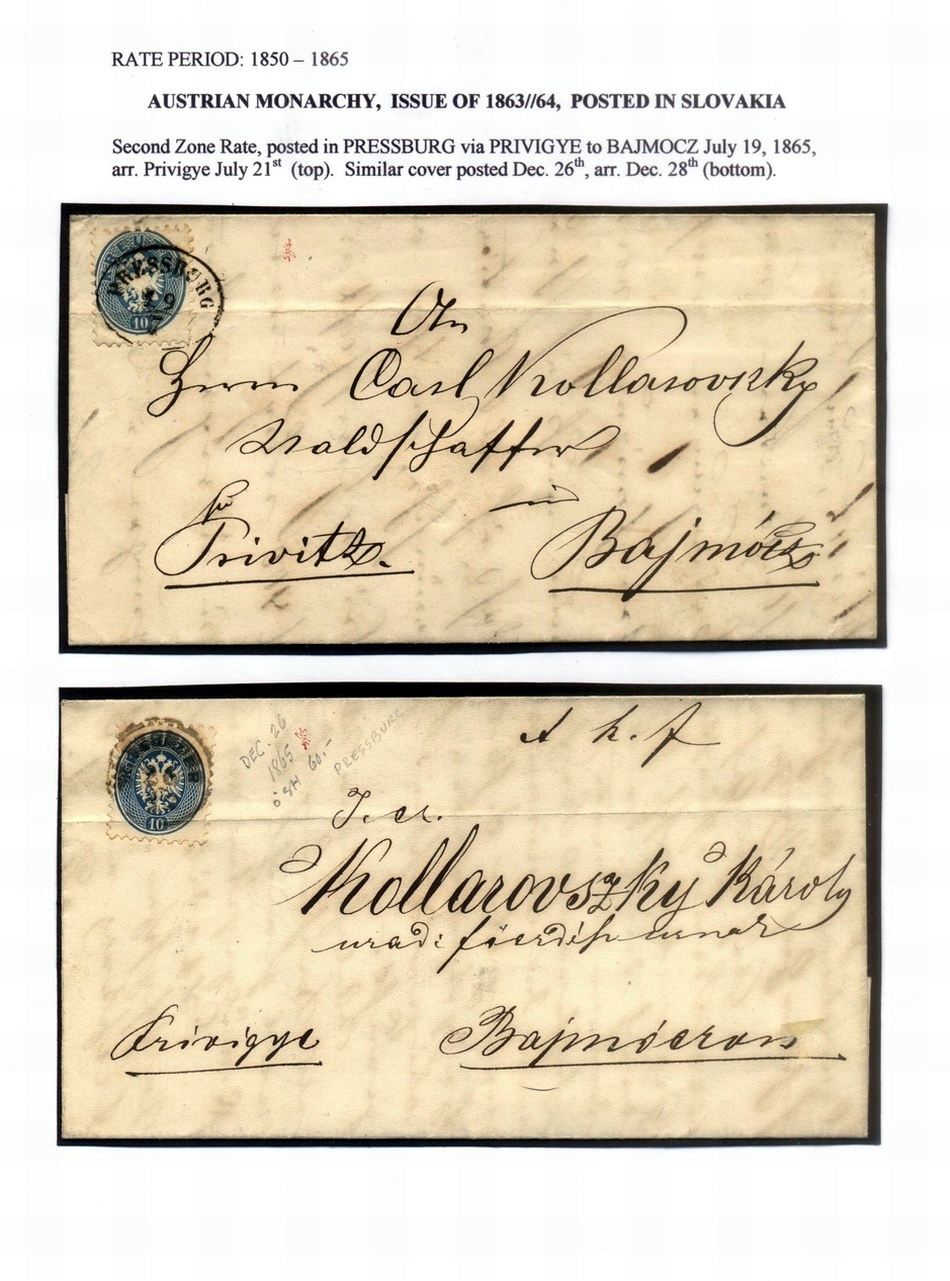 RATE PERIOD: 1850 – 1865
AUSTRIAN MONARCHY, ISSUE OF 1863//64, POSTED IN SLOVAKIA
Second Zone Rate, posted in PRESSBURG via PRIVIGYE to BAJMOCZ July 19, 1865,
arr. Privigye July 21st (top). Similar cover posted Dec. 26th, arr. Dec. 28th (bottom).
PRESSBURG
10
An
Herrn Carl Kollarovszky
Waldschaffer
in
Privitz. Bajmócz
DEC 26
1865
60.-
PRESSBURG
10
Kollarovszky Károly
Privigye Bajmóczon